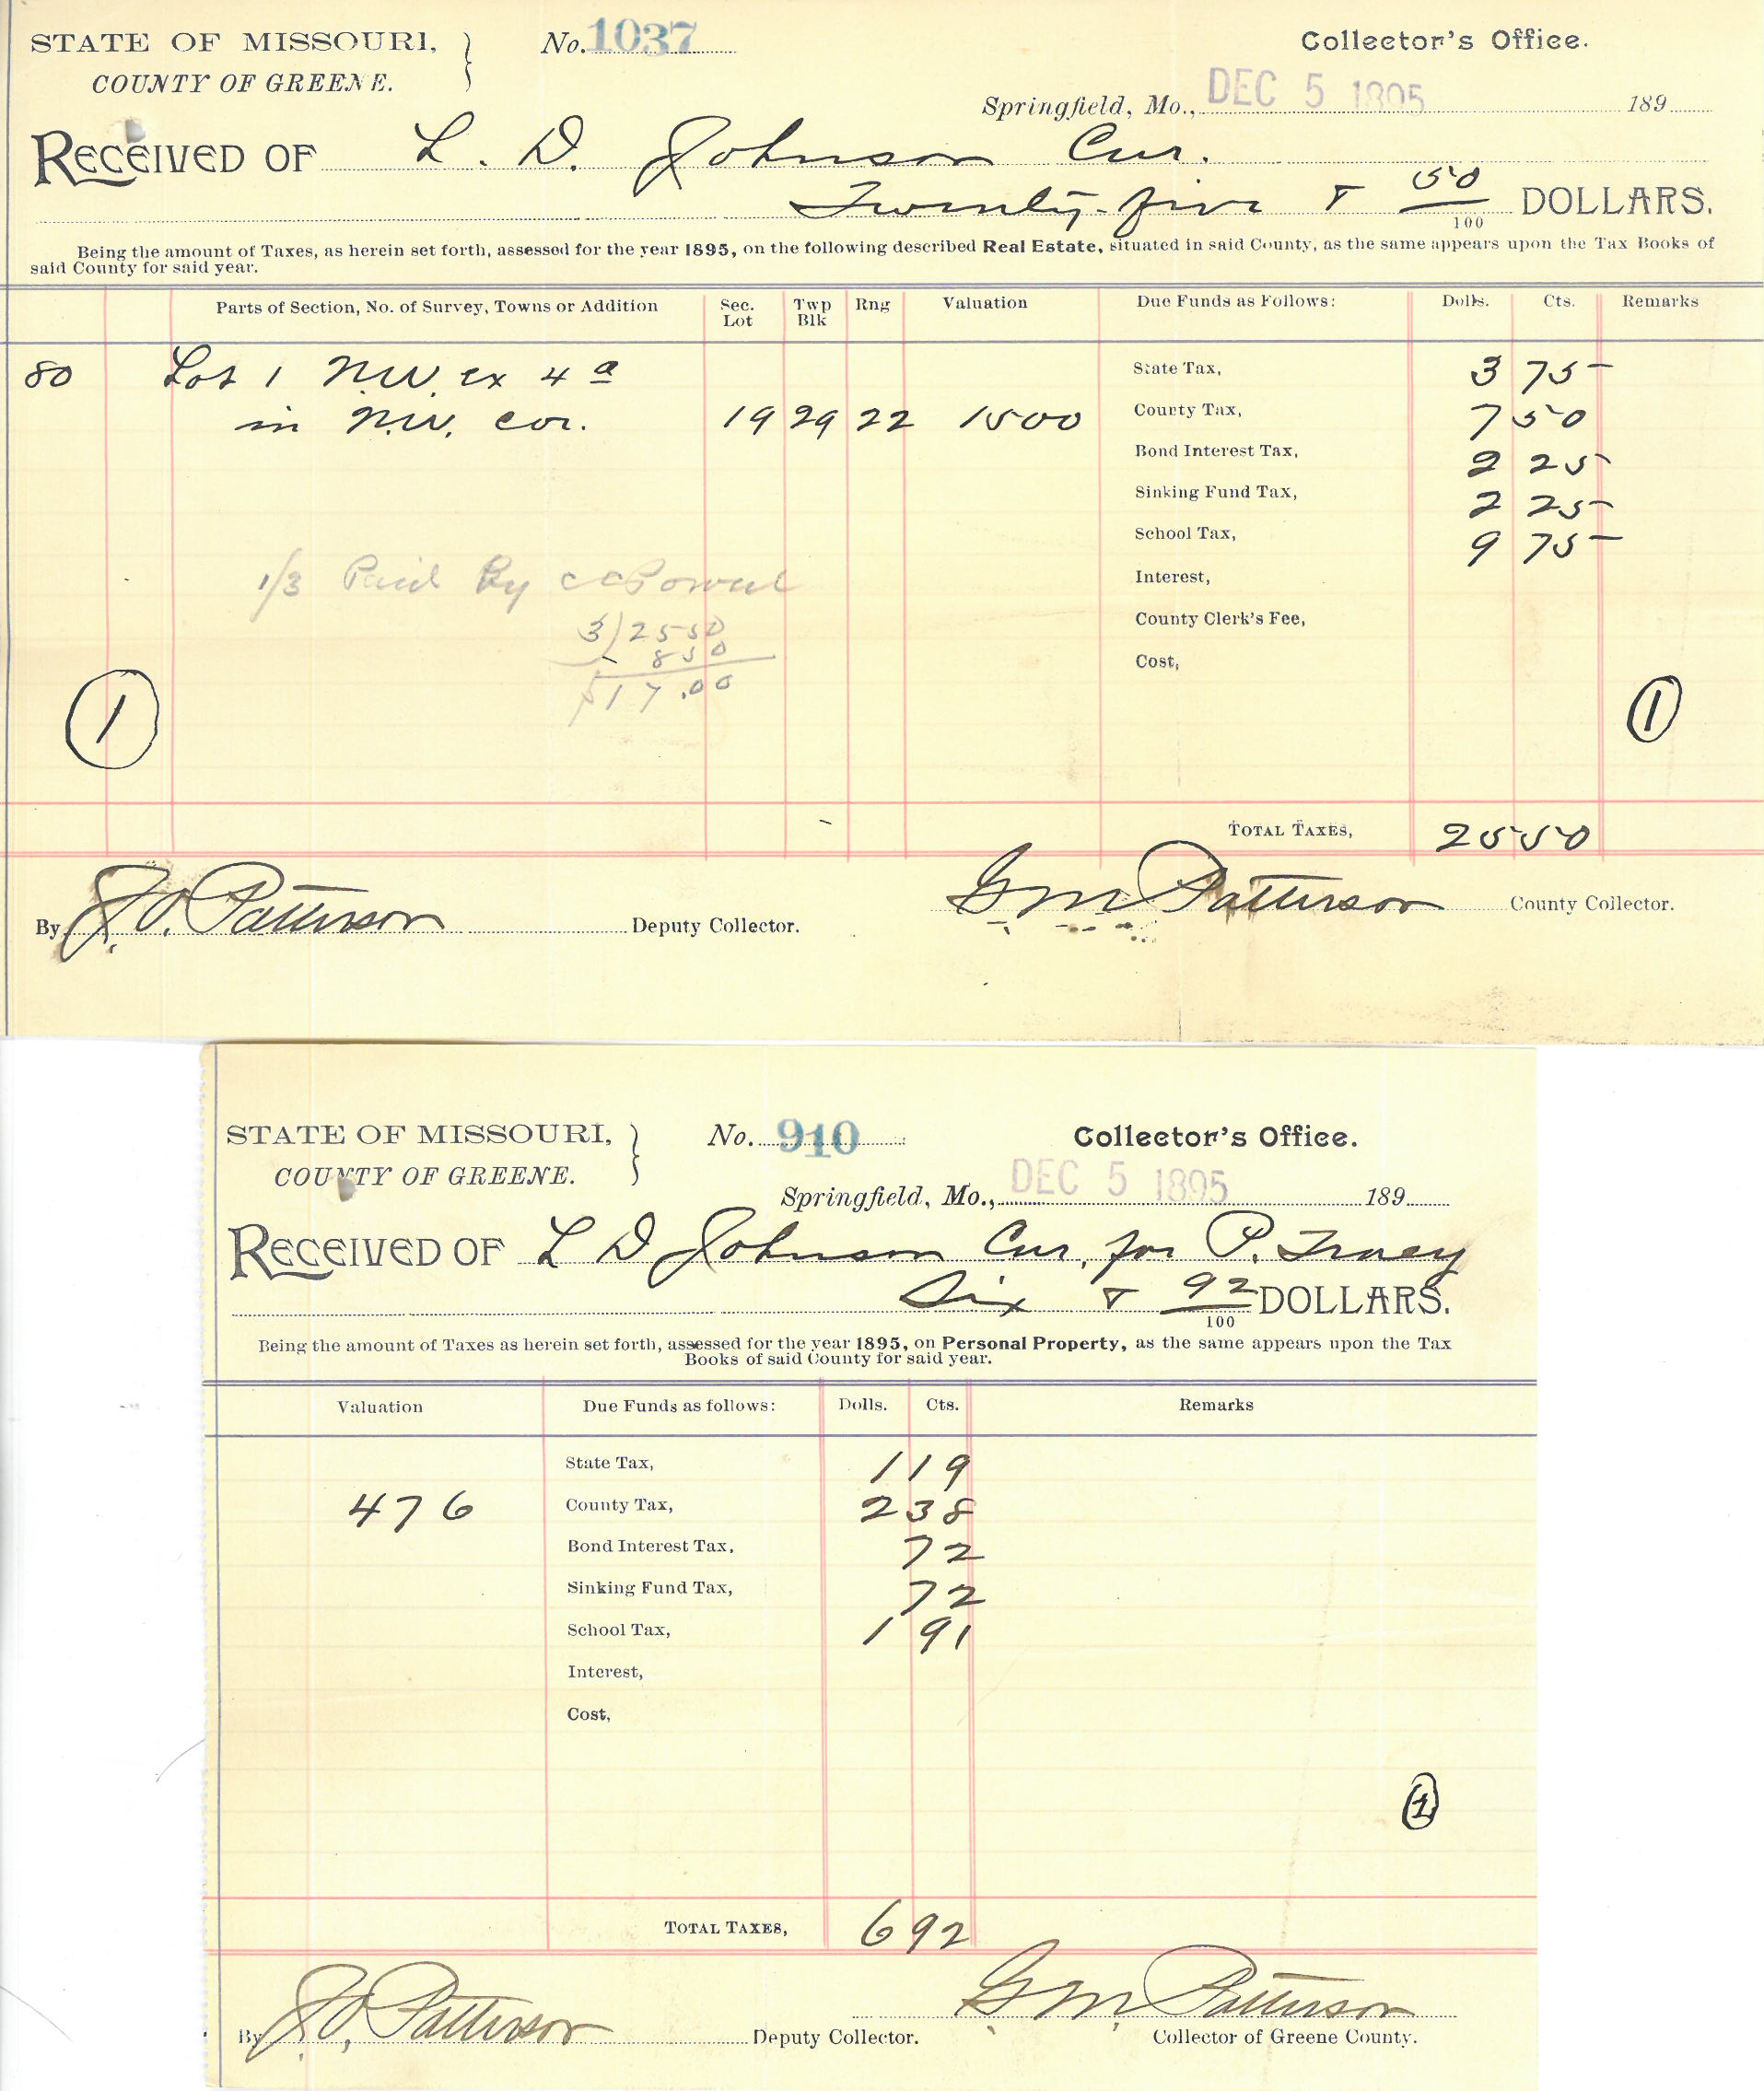 STATE OF MISSOURI, } No. 1037 Collector's Office.
COUNTY OF GREENE.
Springfield, Mo., DEC 5 1895 189
RECEIVED OF L. D. Johnson Cur.
Twenty-five & 50/100 DOLLARS.
Being the amount of Taxes, as herein set forth, assessed for the year 1895, on the following described Real Estate, situated in said County, as the same appears upon the Tax Books of
said County for said year.
Parts of Section, No. of Survey, Towns or Addition Sec. Lot Twp Blk Rng Valuation Due Funds as Follows: Dolls. Cts. Remarks
80 Lot 1 N.W. ex 4 a State Tax, 3 75
in N.W. cor. 19 29 22 1500 County Tax, 7 50
Bond Interest Tax, 2 25
Sinking Fund Tax, 2 25
School Tax, 9 75
1/3 Paid By C C Powell Interest,
3)2550 County Clerk's Fee,
850 Cost,
$17.00
1 1
TOTAL TAXES, 25 50
By J. O. Patterson Deputy Collector. G M Patterson County Collector.
STATE OF MISSOURI, } No. 910 Collector's Office.
COUNTY OF GREENE.
Springfield, Mo., DEC 5 1895 189
RECEIVED OF L D Johnson Cur, for P. Tracy
Six & 92/100 DOLLARS.
Being the amount of Taxes as herein set forth, assessed for the year 1895, on Personal Property, as the same appears upon the Tax
Books of said County for said year.
Valuation Due Funds as follows: Dolls. Cts. Remarks
State Tax, 1 19
476 County Tax, 2 38
Bond Interest Tax, 72
Sinking Fund Tax, 72
School Tax, 1 91
Interest,
Cost,
1
TOTAL TAXES, 6 92
By J. O. Patterson Deputy Collector. G M Patterson Collector of Greene County.